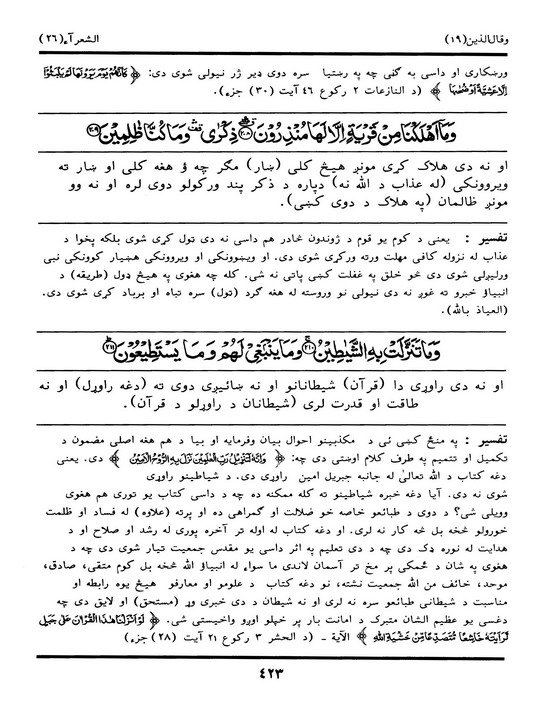 وقال الذين (۱۹) الشعرآء (۲۶)
ورښکاری او داسی به گڼی چه په رښتیا سره دوی ډیر ژر نیولی شوی دی: ﴿ كَأَنَّهُمْ يَوْمَ يَرَوْنَهَا لَمْ يَلْبَثُوْا
إِلَّا عَشِيَّةً أَوْ ضُحٰهَا ﴾ (د النازعات ۲ رکوع ۴۶ آیت (۳۰) جزء).
وَمَا أَهْلَكْنَا مِنْ قَرْيَةٍ إِلَّا لَهَا مُنْذِرُوْنَ ۝۲۰۸ ذِكْرٰى وَمَا كُنَّا ظٰلِمِيْنَ ۝۲۰۹
او نه دی هلاک کړی مونږ هیڅ کلی (ښار) مگر چه ؤ هغه کلی او ښار ته
ویروونکی (له عذاب د الله نه) دپاره د ذکر پند ورکولو دوی لره او نه وو
مونږ ظالمان (په هلاک د دوی کښی).
تفسیر : یعنی د کوم یو قوم د ژوندون څادر هم داسی نه دی ټول کړی شوی بلکه پخوا د
عذاب له نزوله کافی مهلت ورته ورکړی شوی دی. او ویښوونکی او ویروونکی هښیار کوونکی نبی
ورلیږلی شوی دی څو خلق په غفلت کښی پاتی نه شی. کله چه هغوی په هیڅ ډول (طریقه) د
انبیاؤ خبرو ته غوږ نه دی نیولی نو وروسته له هغه گرد (ټول) سره تباه او برباد کړی شوی دی.
(العیاذ بالله).
وَمَا تَنَزَّلَتْ بِهِ الشَّيٰطِيْنُ ۝۲۱۰ وَمَا يَنْبَغِيْ لَهُمْ وَمَا يَسْتَطِيْعُوْنَ ۝۲۱۱
او نه دی راوړی دا (قرآن) شیطانانو او نه ښائیږی دوی ته (دغه راوړل) او نه
طاقت او قدرت لری (شیطانان د راوړلو د قرآن).
تفسیر : په منځ کښی ئی د مکذبینو احوال بیان وفرمایه او بیا د هم هغه اصلی مضمون د
تکمیل او تتمیم په طرف کلام اوښتی دی چه: ﴿ وَإِنَّهُ لَتَنْزِيْلُ رَبِّ الْعٰلَمِيْنَ نَزَلَ بِهِ الرُّوْحُ الْأَمِيْنُ ﴾ دی. یعنی
دغه کتاب د الله تعالیٰ له جانبه جبریل امین راوړی دی. د شیاطینو راوړی
شوی نه دی. آیا دغه خبره شیاطینو ته کله ممکنه ده چه د داسی کتاب یو توری هم هغوی
وویلی شی؟ د دوی د طبائعو خاصه خو ضلالت او گمراهی ده او پرته (علاوه) له فساد او ظلمت
خورولو څخه بل څه کار نه لری. او دغه کتاب له اوله تر آخره پوری له رشد او صلاح او د
هدایت له نوره ډک دی چه د دی تعلیم په اثر داسی یو مقدس جمعیت تیار شوی دی چه د
هغوی په شان د ځمکی پر مخ تر آسمان لاندی ما سواء له انبیاؤ الله څخه بل کوم متقی، صادق،
موحد، خائف من الله جمعیت نشته، نو دغه کتاب د علومو او معارفو هیڅ یوه رابطه او
مناسبت د شیطانی طبائعو سره نه لری او نه شیطان د دی خبری وړ (مستحق) او لایق دی چه
دغسی یو عظیم الشان متبرک د امانت بار پر خپلو اوږو واخیستی شی. ﴿ لَوْ أَنْزَلْنَا هٰذَا الْقُرْاٰنَ عَلٰى جَبَلٍ
لَّرَأَيْتَهُ خَاشِعًا مُّتَصَدِّعًا مِّنْ خَشْيَةِ اللهِ ﴾ الآیة - (د الحشر ۳ رکوع ۲۱ آیت (۲۸) جزء)
۴۲۳